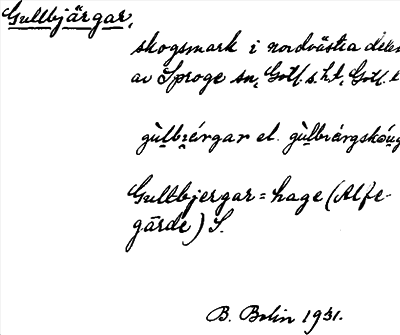 Gullbjärgar,
skogsmark i nordvästra delen
av Sproge sn, Gotl. s. h:t, Gotl. l
gùlbiérgar el. gùlbiérgskóug
Gullbjergar = hage (Alfe-
gärde) S.
B. Bolin 1931.